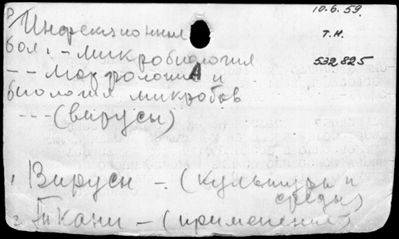 Инфекционные 10.6.59.
бол. - микробиология т.н.
- - Морфология и 532,825
биология микробов
- - - (вирусы)
1. Вирусы - (культуры и
среды)
2. Ткани - (применение)